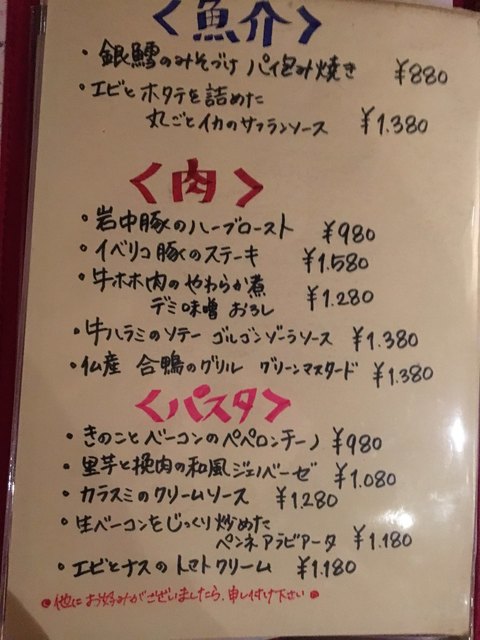 <魚介>
・銀鱈のみそづけ パイ包み焼き ¥880
・エビとホタテを詰めた
丸ごとイカのサフランソース ¥1.380
<肉>
・岩中豚のハーブロースト ¥980
・イベリコ豚のステーキ ¥1.580
・牛ホホ肉のやわらか煮
デミ味噌 おろし ¥1.280
・牛ハラミのソテー ゴルゴンゾーラソース ¥1.380
・仏産 合鴨のグリル グリーンマスタード ¥1.380
<パスタ>
・きのことベーコンのペペロンチーノ ¥980
・里芋と挽肉の和風ジェノベーゼ ¥1.080
・カラスミのクリームソース ¥1.280
・生ベーコンをじっくり炒めた
ペンネアラビアータ ¥1.180
・エビとナスのトマトクリーム ¥1.180
●他にお好みがございましたら、申し付け下さい●